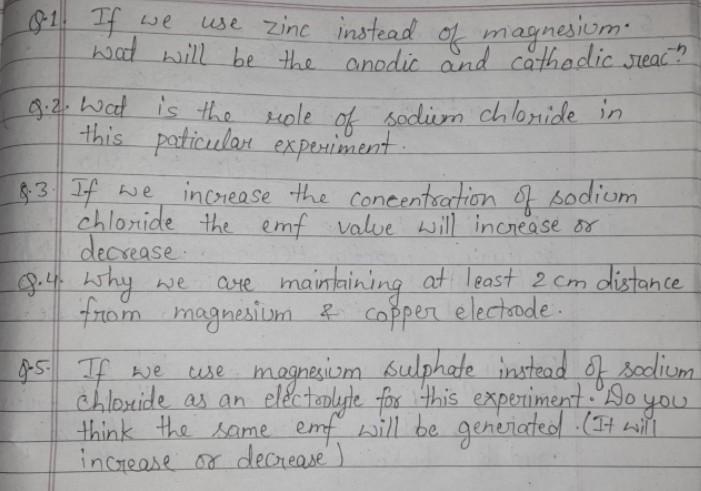 Q.1. If we use zinc instead of magnesium.
wat will be the anodic and cathodic reacn?
Q.2. Wat is the role of sodium chloride in
this paticular experiment.
Q.3 If we increase the concentration of sodium
chloride the emf value will increase or
decrease.
Q.4. Why we are maintaining at least 2 cm distance
from magnesium & copper electrode.
Q.5. If we use magnesium sulphate instead of sodium
chloride as an electrolyte for this experiment. Do you
think the same emf will be generated. (It will
increase or decrease)